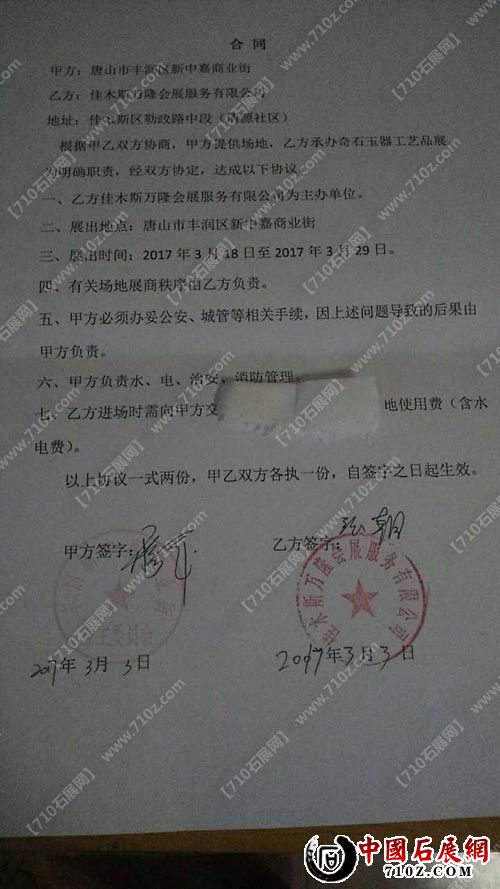 合 同
甲方：唐山市丰润区新中嘉商业街
乙方：佳木斯万隆会展服务有限公司
地址：佳木斯区勤政路中段（清源社区）
根据甲乙双方协商，甲方提供场地，乙方承办奇石玉器工艺品展
为明确职责，经双方协定，达成以下协议
一、乙方佳木斯万隆会展服务有限公司为主办单位。
二、展出地点：唐山市丰润区新中嘉商业街
三、展出时间：2017年3月18日至2017年3月29日。
四、有关场地展商秩序由乙方负责。
五、甲方必须办妥公安、城管等相关手续，因上述问题导致的后果由
甲方负责。
六、甲方负责水、电、治安、消防管理
七、乙方进场时需向甲方交 地使用费（含水
电费）。
以上协议一式两份，甲乙双方各执一份，自签字之日起生效。
甲方签字： 乙方签字：
佳木斯万隆会展服务有限公司
2017年3月3日 2017年3月3日
【710石展网】www.710z.com
中國石展網
710z.com